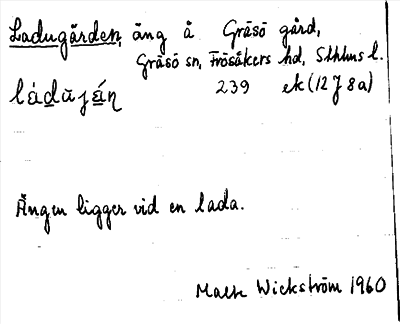 Ladugården, äng å Gräsö gård,
Gräsö sn, Frösåkers hd, Sthlms l.
239 ek (12 J 8a)
Ängen ligger vid en lada.
Malte Wickström 1960